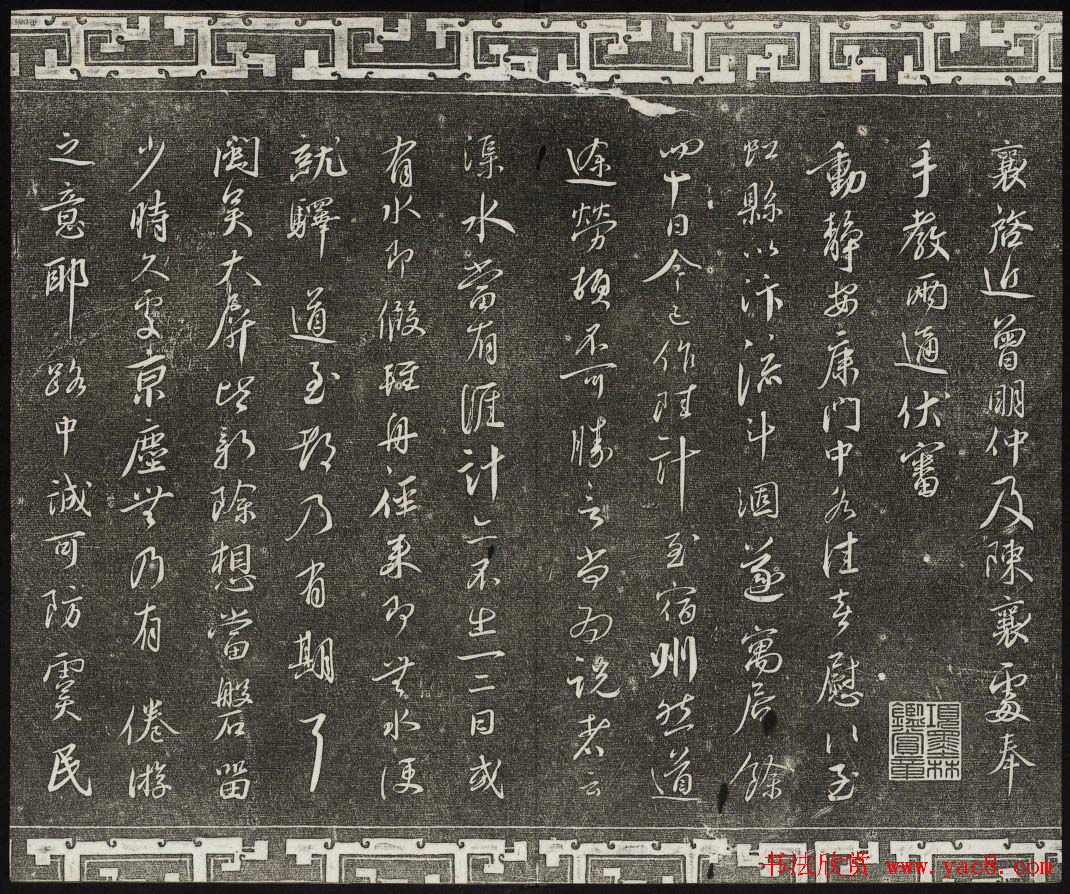 襄啓近曾明仲及陳襄處奉
手教兩通伏審
動靜安康門中各佳喜慰以至
虹縣以汴流斗涸遂寓居餘
四十日今已作陸計至宿州然道
途勞頓不可勝言尚爲說者云
渠水當有涯計亦不出一二日或
有水即假輕舟徑來即無水便
就驛道至都乃有期耳
閩吳大屏皆新除想當磐留
少時久處京塵無乃有倦游
之意耶路中誠可防虞民
項墨林鑑賞章
书法欣赏 www.yac8.com